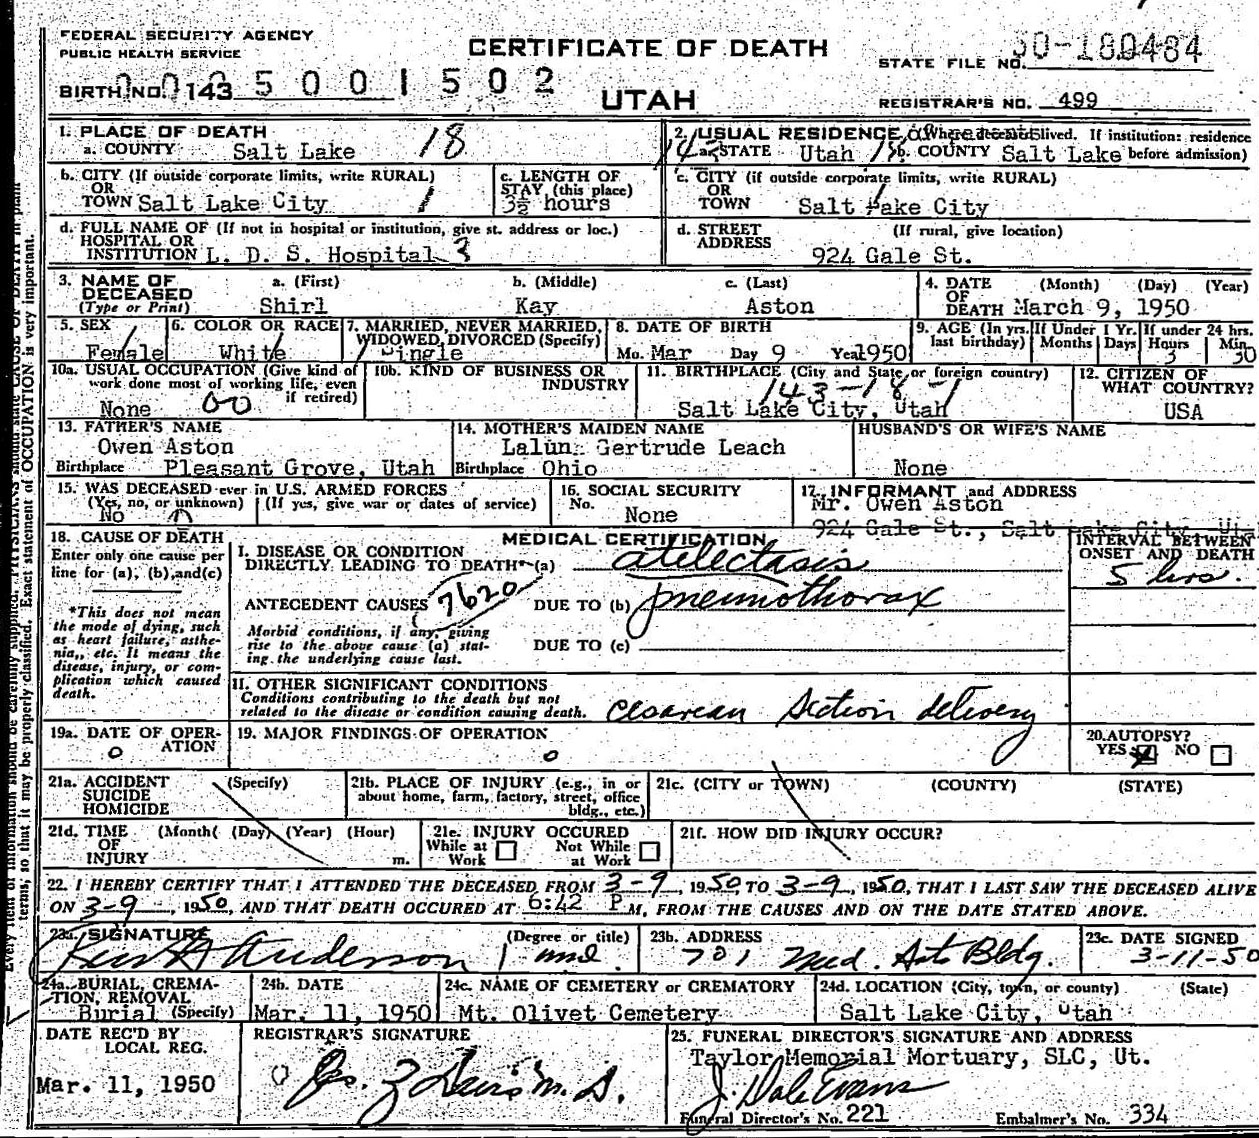 FEDERAL SECURITY AGENCY
PUBLIC HEALTH SERVICE
CERTIFICATE OF DEATH
50-180484
STATE FILE NO.
BIRTH NO. 143 5 0 0 1 5 0 2
UTAH
REGISTRAR'S NO. 499
1. PLACE OF DEATH
a. COUNTY Salt Lake 18
2. USUAL RESIDENCE (Where deceased lived. If institution: residence
a. STATE Utah b. COUNTY Salt Lake before admission)
b. CITY (If outside corporate limits, write RURAL)
OR
TOWN Salt Lake City 1
c. LENGTH OF
STAY (this place)
3½ hours
c. CITY (if outside corporate limits, write RURAL)
OR
TOWN Salt Lake City
d. FULL NAME OF (If not in hospital or institution, give st. address or loc.)
HOSPITAL OR
INSTITUTION L. D. S. Hospital 3
d. STREET (If rural, give location)
ADDRESS 924 Gale St.
3. NAME OF DECEASED
(Type or Print)
a. (First) b. (Middle) c. (Last)
Shirl Kay Aston
4. DATE (Month) (Day) (Year)
OF
DEATH March 9, 1950
5. SEX
Female
6. COLOR OR RACE
White
7. MARRIED, NEVER MARRIED,
WIDOWED, DIVORCED (Specify)
Single
8. DATE OF BIRTH
Mo. Mar Day 9 Year 1950
9. AGE (In yrs. last birthday)
If Under 1 Yr. Months Days
If under 24 hrs. Hours Min.
3 30
10a. USUAL OCCUPATION (Give kind of
work done most of working life, even
if retired)
None 00
10b. KIND OF BUSINESS OR
INDUSTRY
11. BIRTHPLACE (City and State or foreign country)
143-18-1
Salt Lake City, Utah
12. CITIZEN OF
WHAT COUNTRY?
USA
13. FATHER'S NAME
Owen Aston
Birthplace Pleasant Grove, Utah
14. MOTHER'S MAIDEN NAME
Gertrude Leach
Birthplace Ohio
HUSBAND'S OR WIFE'S NAME
None
15. WAS DECEASED ever in U.S. ARMED FORCES
(Yes, no, or unknown) (If yes, give war or dates of service)
No
16. SOCIAL SECURITY
No. None
17. INFORMANT and ADDRESS
Mr. Owen Aston
924 Gale St., Salt Lake City, Ut.
18. CAUSE OF DEATH
Enter only one cause per
line for (a), (b), and (c)
*This does not mean
the mode of dying, such
as heart failure, asthe-
nia, etc. It means the
disease, injury, or com-
plication which caused
death.
MEDICAL CERTIFICATION
INTERVAL BETWEEN
ONSET AND DEATH
I. DISEASE OR CONDITION
DIRECTLY LEADING TO DEATH* (a) atelectasis
5 hrs.
ANTECEDENT CAUSES 7620 DUE TO (b) pneumothorax
Morbid conditions, if any, giving
rise to the above cause (a) stat-
ing the underlying cause last.
DUE TO (c)
II. OTHER SIGNIFICANT CONDITIONS
Conditions contributing to the death but not
related to the disease or condition causing death.
cesarean section delivery
19a. DATE OF OPER-
ATION
0
19. MAJOR FINDINGS OF OPERATION
0
20. AUTOPSY?
YES NO
21a. ACCIDENT (Specify)
SUICIDE
HOMICIDE
21b. PLACE OF INJURY (e.g., in or
about home, farm, factory, street, office
bldg., etc.)
21c. (CITY or TOWN) (COUNTY) (STATE)
21d. TIME (Month( (Day) (Year) (Hour)
OF
INJURY m.
21e. INJURY OCCURED
While at Work Not While at Work
21f. HOW DID INJURY OCCUR?
22. I HEREBY CERTIFY THAT I ATTENDED THE DECEASED FROM 3-9, 1950 TO 3-9, 1950, THAT I LAST SAW THE DECEASED ALIVE
ON 3-9, 1950, AND THAT DEATH OCCURED AT 6:42 P M, FROM THE CAUSES AND ON THE DATE STATED ABOVE.
23a. SIGNATURE (Degree or title)
Anderson md.
23b. ADDRESS
701 Med. Arts Bldg.
23c. DATE SIGNED
3-11-50
24a. BURIAL, CREMA-
TION, REMOVAL
Burial (Specify)
24b. DATE
Mar. 11, 1950
24c. NAME OF CEMETERY or CREMATORY
Mt. Olivet Cemetery
24d. LOCATION (City, town, or county) (State)
Salt Lake City, Utah
DATE REC'D BY
LOCAL REG.
Mar. 11, 1950
REGISTRAR'S SIGNATURE
25. FUNERAL DIRECTOR'S SIGNATURE AND ADDRESS
Taylor Memorial Mortuary, SLC, Ut.
J. Dale Evans
Funeral Director's No. 221 Embalmer's No. 334